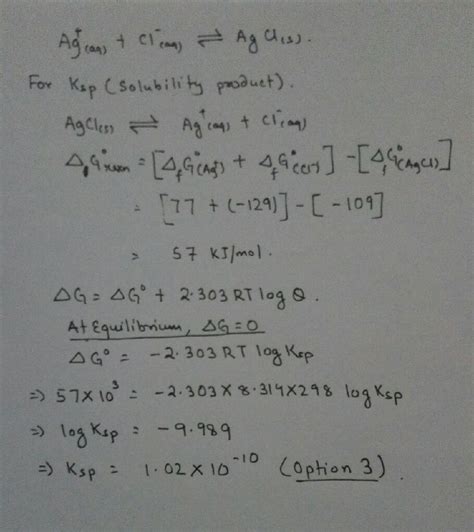 Ag⁺(aq) + Cl⁻(aq) ⇌ AgCl(s).
For Ksp (Solubility product).
AgCl(s) ⇌ Ag⁺(aq) + Cl⁻(aq)
ΔrG°rxn = [ΔfG°(Ag⁺) + ΔfG°(Cl⁻)] - [ΔfG°(AgCl)]
= [77 + (-129)] - [-109]
= 57 KJ/mol.
ΔG = ΔG° + 2.303 RT log Q.
At Equilibrium, ΔG = 0
ΔG° = -2.303 RT log Ksp
⇒ 57 × 10³ = -2.303 × 8.314 × 298 log Ksp
⇒ log Ksp = -9.989
⇒ Ksp = 1.02 × 10⁻¹⁰ (Option 3).